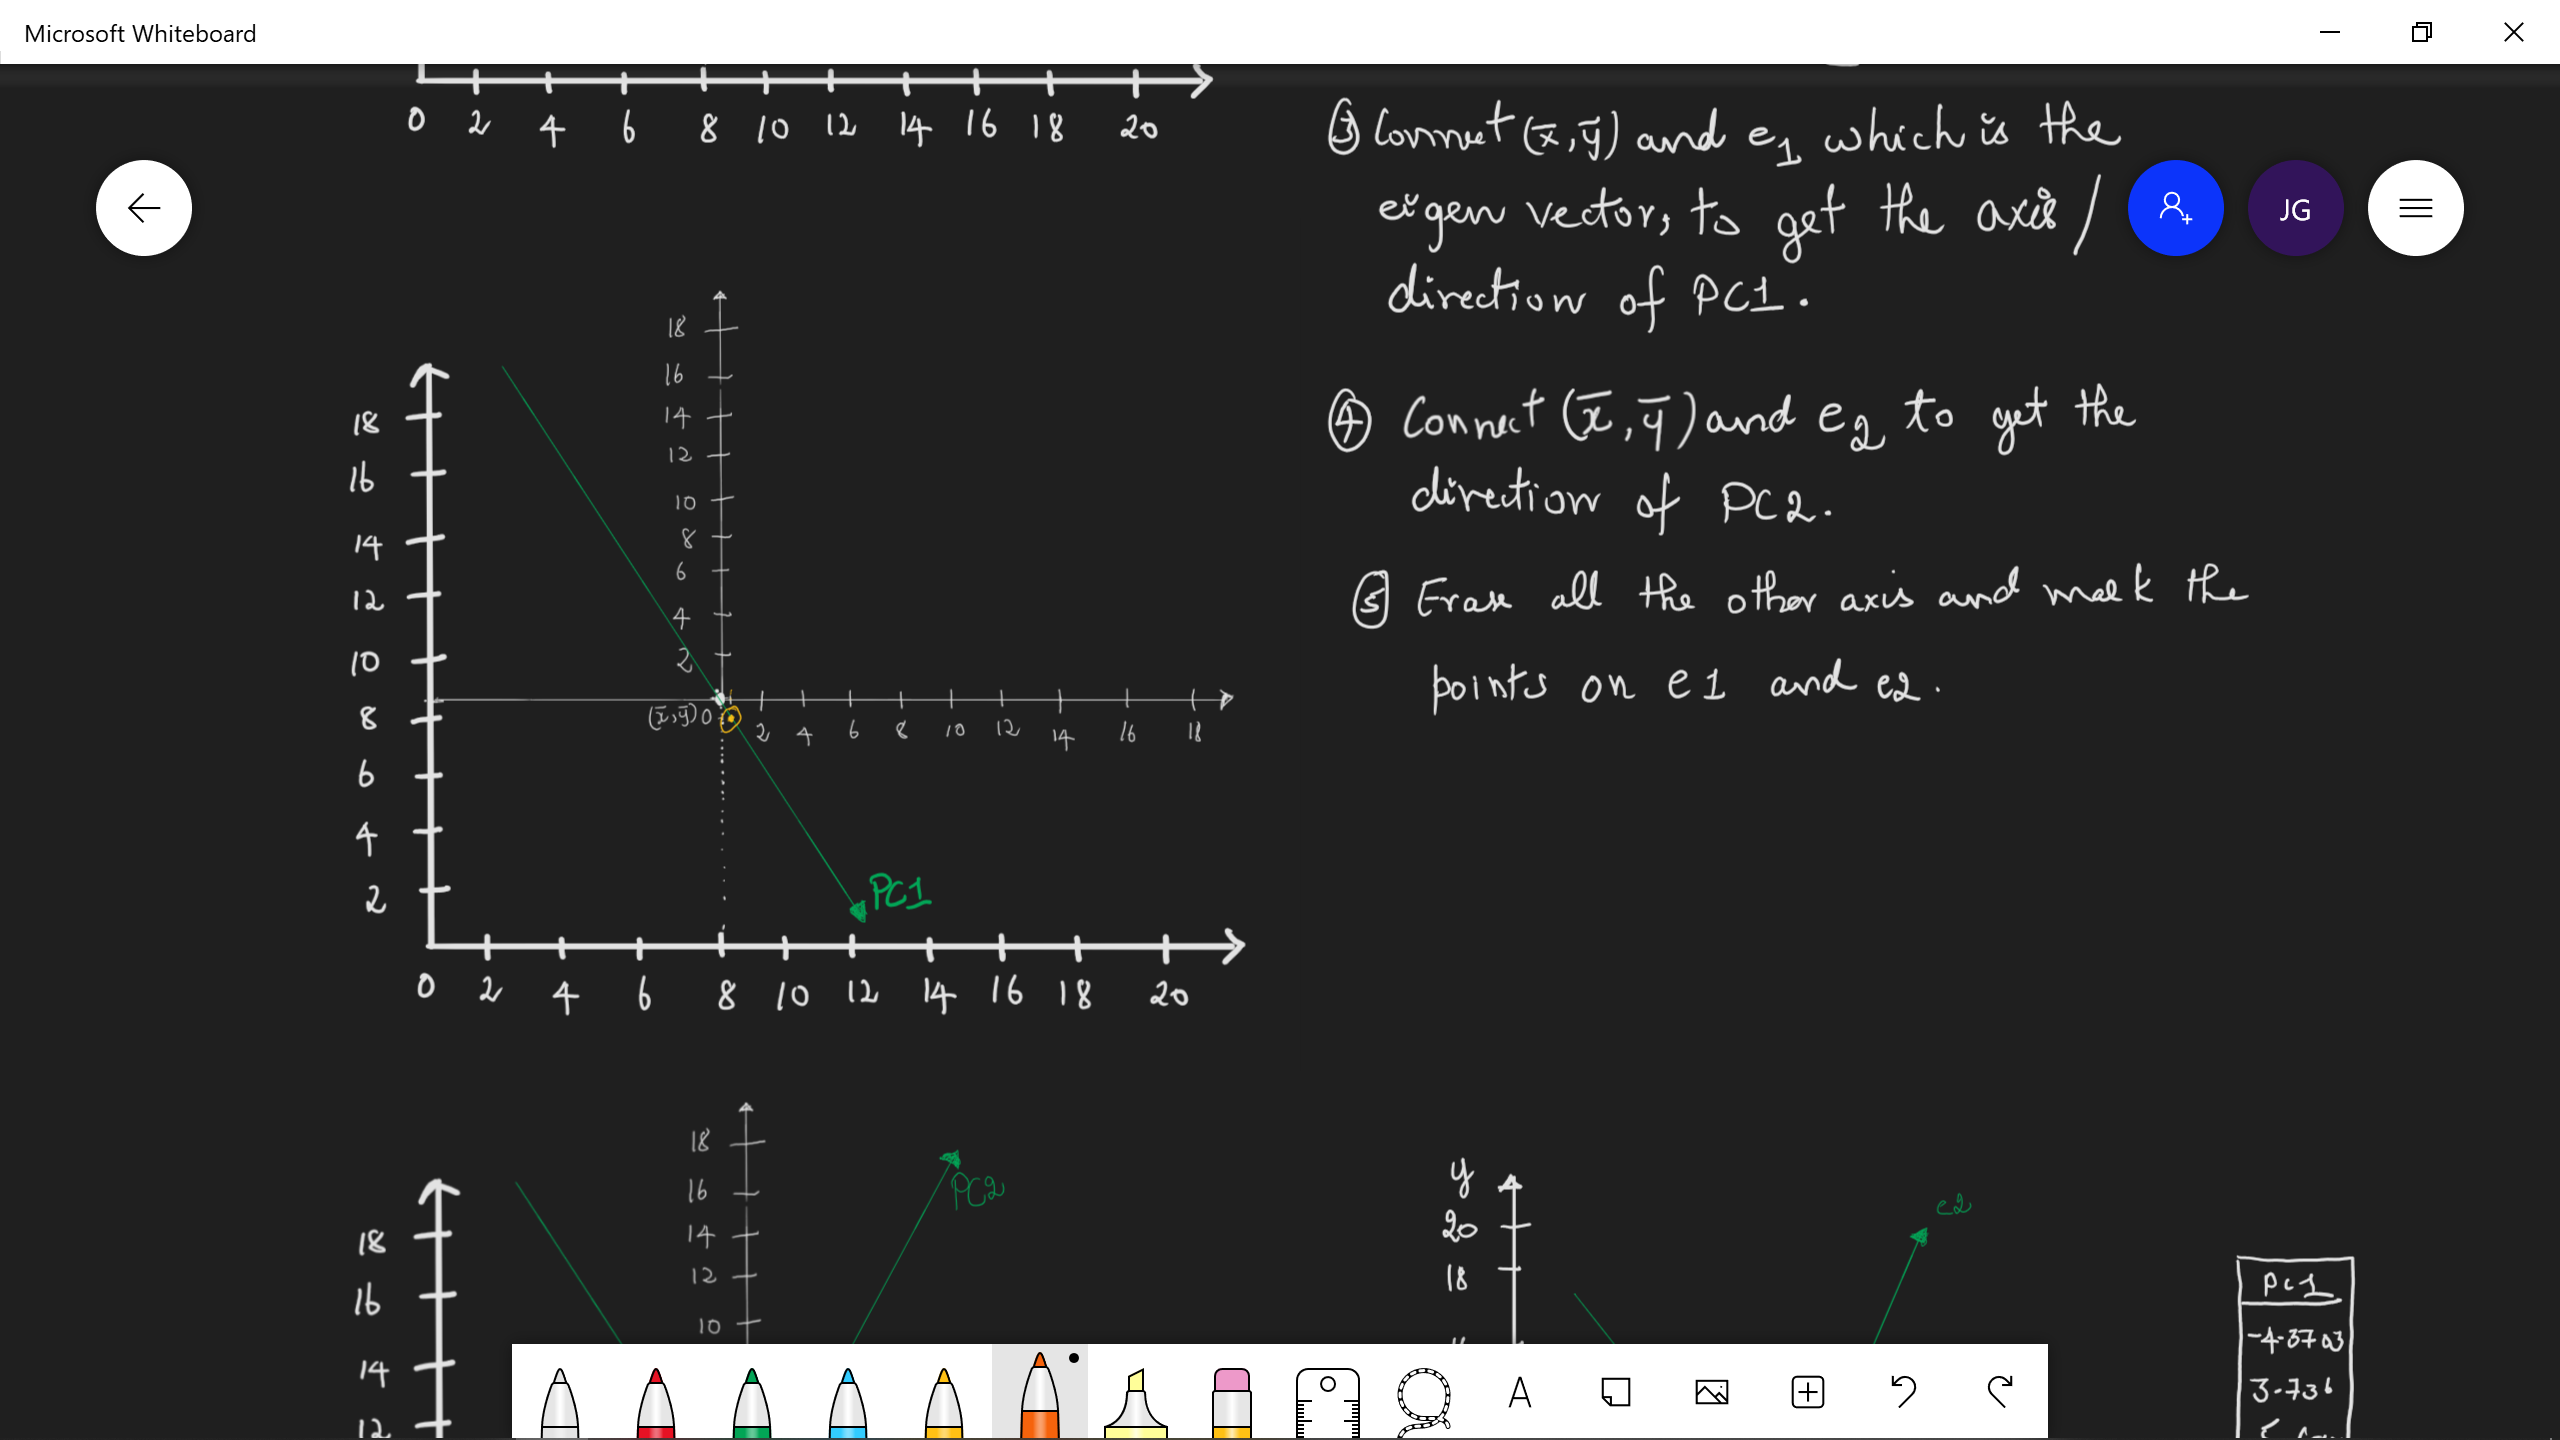 Microsoft Whiteboard
0 2 4 6 8 10 12 14 16 18 20
③ Connect (x̄, ȳ) and e1 which is the
eigen vector, to get the axis /
direction of PC1.
JG
④ Connect (x̄, ȳ) and e2 to get the
direction of PC2.
⑤ Erase all the other axis and mark the
points on e1 and e2.
18
16
14
12
10
8
6
4
2
18
16
14
12
10
8
6
4
2
(x̄, ȳ) 0 2 4 6 8 10 12 14 16 18
PC1
0 2 4 6 8 10 12 14 16 18 20
18
16
14
12
18
16
14
12
10
PC2
y
20
18
e2
PC1
-4.3703
3.736
A